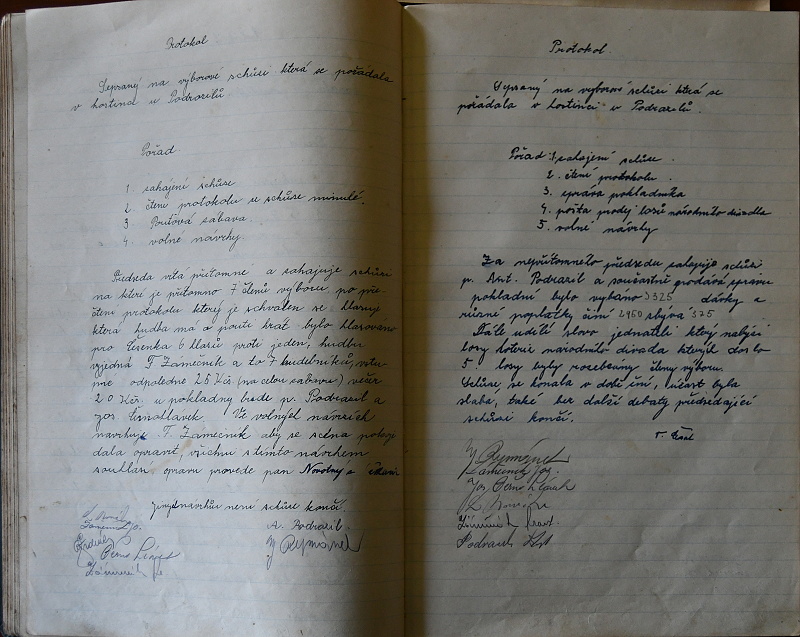 Protokol
Sepsaný na výborové schůsi která se pořádala
v hostinci u Podrazilů.
Pořad
1. sahájení schůse
2. čtení protokolu se schůse minulé.
3. Pouťová sábava.
4. volné návrhy.
Předseda vítá přítomné a sahajuje schůsi
na které je přítomno 7 členů výboru, po pře-
čtení protokolu který je schválen se hlasuj
která hudba má o pouti hrát bylo hlasováno
pro 6 hlasů proti jeden, hudbu
vyjedná F. Zámečník a to 7 hudebníků, vstu-
pné odpoledne 2.5 Kčs. (na celou sábavu) večer
20 Kčs. u pokladny bude p. Podrazil a
Jos. Ve volných návrzích
navrhuje F. Zámečník aby se scéna
dala opravit, všichni s tímto návrhem
souhlasí opravu provede pan Novotný a
návrhů není schůse končí.
A. Podrazil.
Protokol.
Sepsaný na výborové schůsi která se
pořádala v hostinci u Podrazilů.
Pořad: 1. sahájení schůse.
2. čtení protokolu.
3. správa pokladníka
4. pošta prodej losů národního divadla
5. volné návrhy
Za nepřítomného předsedu sahajuje schůsi
p. Ant. Podrazil a současně podává správu
pokladní bylo vybráno 3325 dárky a
různé poplatky činí 2950 sbývá 375
Dále udělí slovo jednateli který nabýsí
losy loterie národního divadla kterých došlo
5. losy byly rosebrány členy výboru.
Schůse se konala v době žní, účast byla
slabá, také bes další debaty předsedající
schůsi končí.
Podrazil Ant